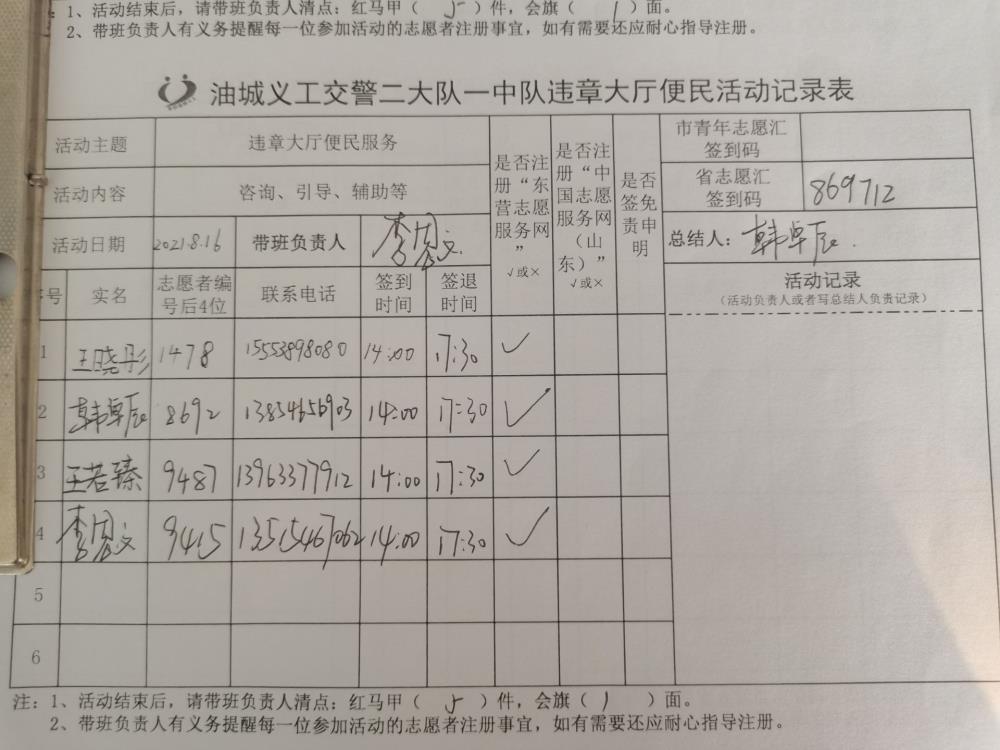 1、活动结束后，请带班负责人清点：红马甲（ 5 ）件，会旗（ 1 ）面。
2、带班负责人有义务提醒每一位参加活动的志愿者注册事宜，如有需要还应耐心指导注册。
油城义工交警二大队一中队违章大厅便民活动记录表
活动主题 违章大厅便民服务
活动内容 咨询、引导、辅助等
活动日期 2021.8.16 带班负责人 李恩文
序号 实名 志愿者编号后4位 联系电话 签到时间 签退时间
是否注册“东营志愿服务网” √或×
是否注册“中国志愿服务网（山东）” √或×
是否签免责申明
市青年志愿汇签到码
省志愿汇签到码 869712
总结人：韩卓辰.
活动记录
（活动负责人或者写总结人负责记录）
1 王晓彤 1478 15553898080 14:00 17:30 √
2 韩卓辰 8692 13854656903 14:00 17:30 √
3 王若臻 9487 13963377912 14:00 17:30 √
4 李恩文 9415 13515467062 14:00 17:30 √
5
6
注：1、活动结束后，请带班负责人清点：红马甲（ 5 ）件，会旗（ 1 ）面。
2、带班负责人有义务提醒每一位参加活动的志愿者注册事宜，如有需要还应耐心指导注册。